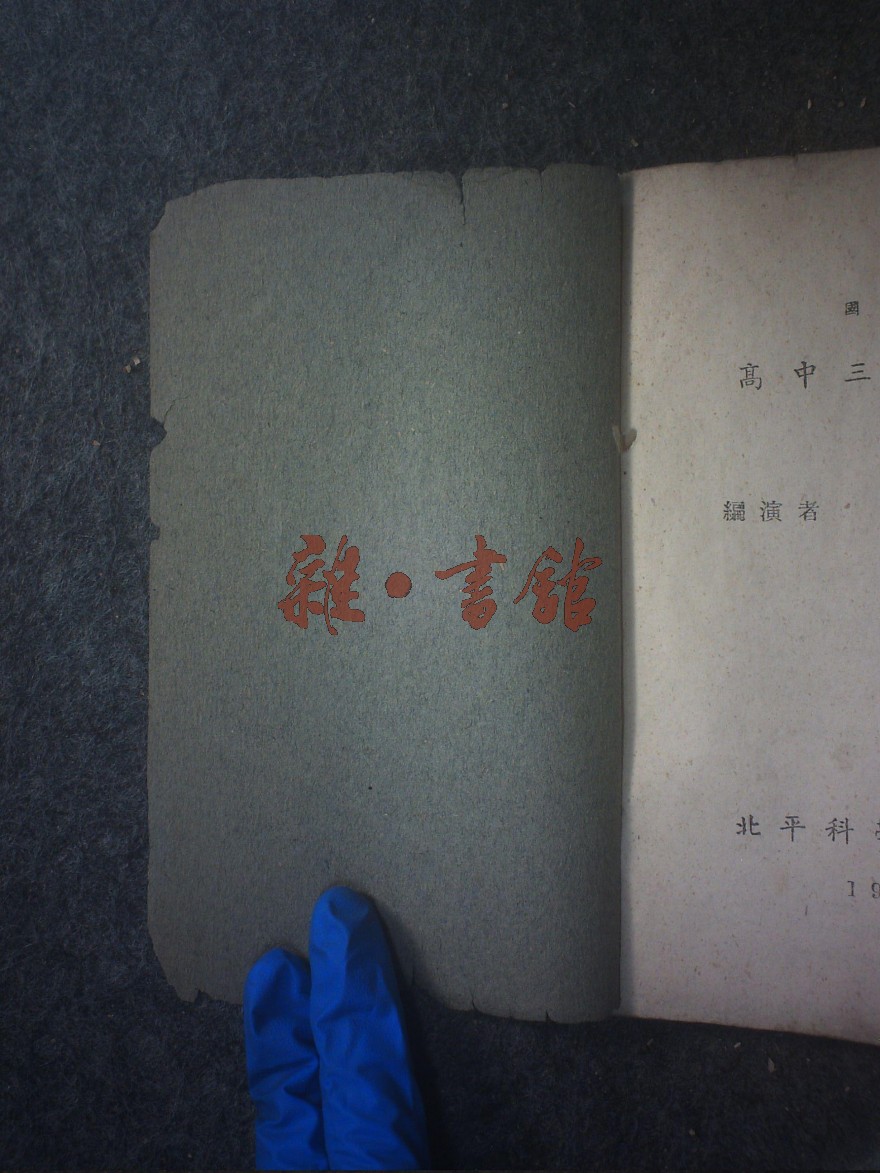 國
高中三
編演者
北平科
19
雜·書館